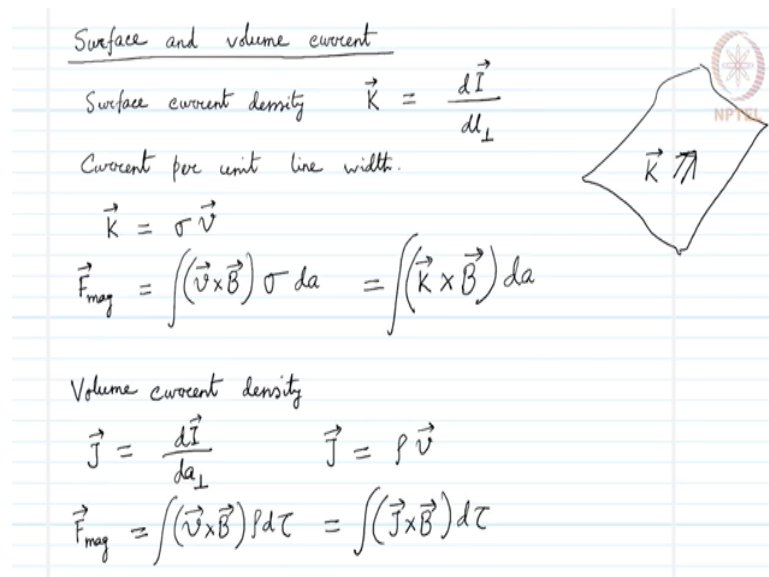 Surface and volume current
Surface current density K⃗ = dI⃗ / dl⊥
NPTEL
Current per unit line width.
K⃗
K⃗ = σ v⃗
F⃗mag = ∫(v⃗ × B⃗) σ da = ∫(K⃗ × B⃗) da
Volume current density
J⃗ = dI⃗ / da⊥ J⃗ = ρ v⃗
F⃗mag = ∫(v⃗ × B⃗) ρ dτ = ∫(J⃗ × B⃗) dτ